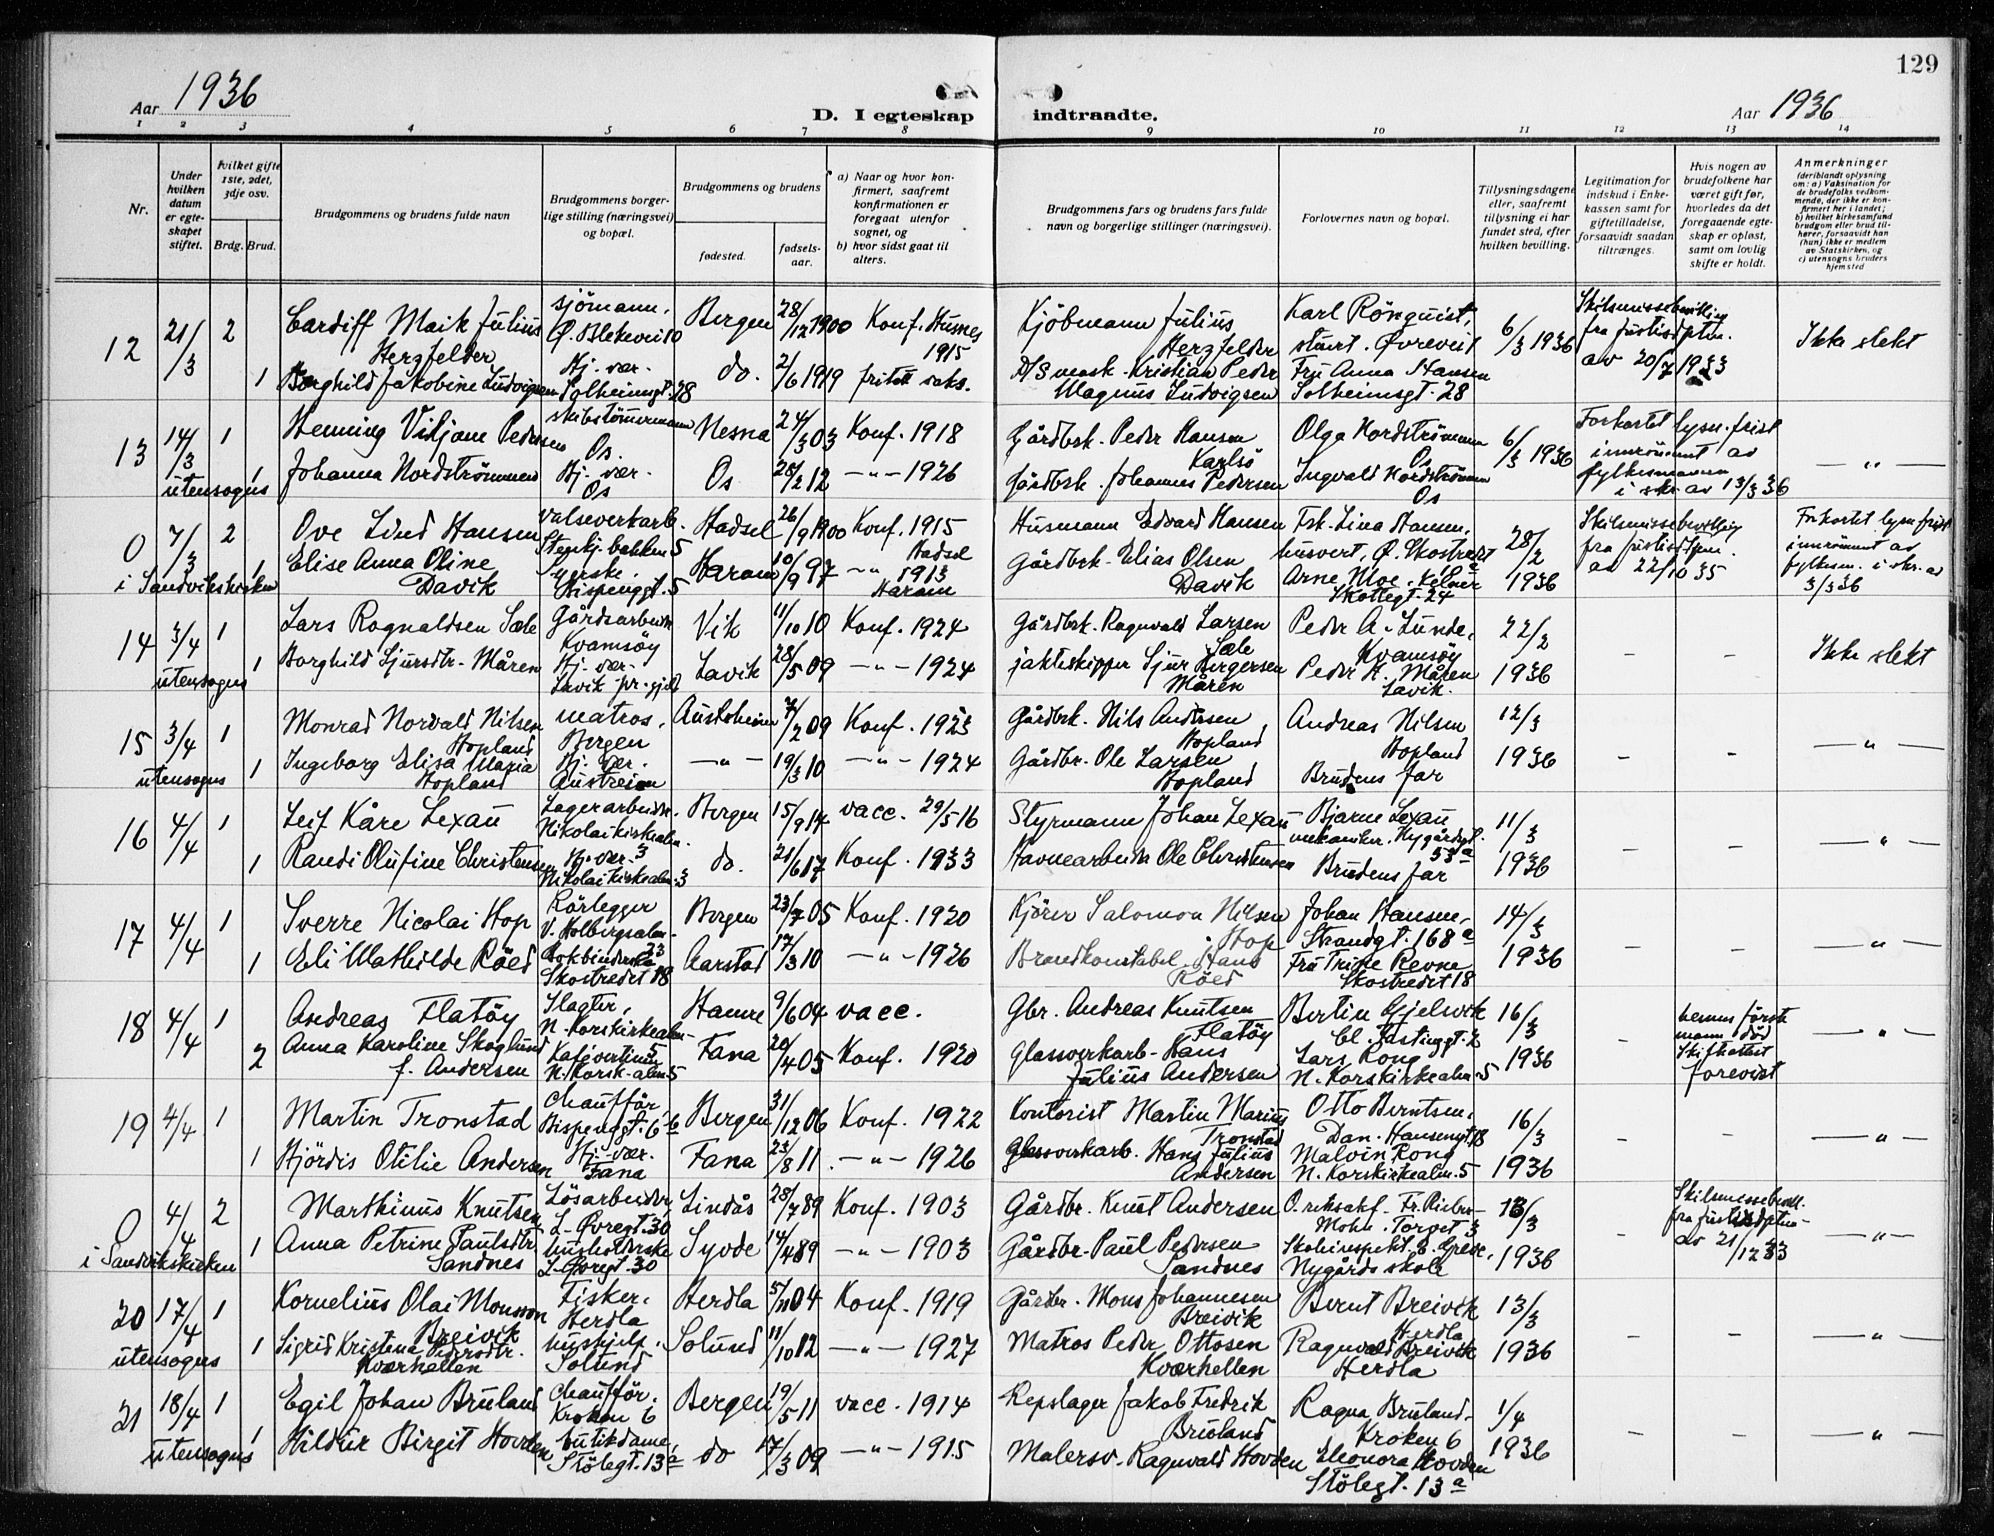 129
Aar 1936
D. I egteskap indtraadte.
Aar 1936
1 2 3 4 5 6 7 8 9 10 11 12 13 14
Nr.
Under hvilken datum er egteskapet stiftet.
Hvilket gifte 1ste, 2det, 3dje osv.
Brdg. Brud.
Brudgommens og brudens fulde navn
Brudgommens borgerlige stilling (næringsvei) og bopæl.
Brudgommens og brudens
fødested. fødselsaar.
a) Naar og hvor konfirmert, saafremt konfirmationen er foregaat utenfor sognet, og
b) hvor sidst gaat til alters.
Brudgommens fars og brudens fars fulde navn og borgerlige stillinger (næringsvei).
Forlovernes navn og bopæl.
Tillysningsdagene eller, saafremt tillysning ei har fundet sted, efter hvilken bevilling.
Legitimation for indskud i Enkekassen samt for giftetilladelse, forsaavidt saadan tiltrænges.
Hvis nogen av brudefolkene har været gift før, hvorledes da det foregaaende egteskap er opløst, samt om lovlig skifte er holdt.
Anmerkninger
(deriblandt oplysning om: a) Vaksination for de brudefolks vedkommende, der ikke er konfirmert her i landet; b) hvilket kirkesamfund brudgom eller brud tilhører, forsaavidt han (hun) ikke er medlem av Statskirken, og c) utensogns bruders hjemsted
12 21/3 2 Cardiff Maik Julius Herzfelder sjömann, Ö. Blekevei 10 Bergen 28/12 1900 Konf. Husnes 1915 Kjöbmann Julius Herzfelder Karl Rönquist, stuert. Øvreveit 6/3 1936 Skilsmissebevilling fra Justisdptm. av 20/7 1933 Ikke slekt
1 Borghild Jakobine Ludvigsen Hj. vær. Solheimgt. 28 do. 2/6 1919 fritatt Kristian Peder Magnus Ludvigsen Fru Anna Hansen Solheimsgt. 28
13 14/3 1 Henning Viljam Pedersen skibstömmermann Os. Nesna 24/3 03 Konf. 1918 Gårdbrk. Peder Hansen Karlsö Olga Nordströmmen Os 6/3 1936 Forkortet lysn. frist innrömmet av fylkesmannen i skr. av 13/3 36 — " —
utensogns 1 Johanna Nordströmmen Hj. vær. Os Os 28/2 12 — " — 1926 Gårdbrk. Johannes Pedersen Ingvald Nordströmmen Os
0 7/3 2 Ove Lund Hansen valseverkarb. Stenkj. bakken 5 Hadsel 26/9 1900 Konf. 1915 Hadsel Husmann Edvard Hansen Frk. Lina Hansen, husvert, Ø. Skostredet 28/2 1936 Skilsmissebevilling fra Justisdptm. av 22/10 35 Forkortet lysn frist innrömmet av fylkesm. i skr. av 3/3 36
i Sandvikskirken 1 Elise Anna Oline Davik Syerske. Bispenggt. 5 Haram 10/9 97 — " — 1913 Haram Gårdbrk. Elias Olsen Davik Arne Moe. Kelner Skottegt. 24
14 3/4 1 Lars Ragnaldsen Sæle Gårdsarbeider Kvamsöy Vik 11/10 10 Konf. 1924 Gårdbrk. Ragnvald Larsen Sæle Peder A. Lunde, Kvamsöy 22/2 1936 - - Ikke slekt
utensogns 1 Borghild Sjursdtr. Måren Hj. vær. Lavik pr.gjeld Lavik 28/5 09 — " — 1924 jakteskipper Sjur Bergersen Måren Peder K. Måren Lavik.
15 3/4 1 Monrad Norvald Nilsen Hopland matros, Bergen Austrheim 7/2 09 Konf. 1923 Gårdbrk. Nils Andersen Hopland Andreas Nilsen Hopland 12/3 1936 - - — " —
utensogns 1 Ingeborg Elisa Maria Hopland Hj. vær. Austreim — " — 19/3 10 — " — 1924 Gårdbr. Ole Larsen Hopland Brudens far
16 4/4 1 Leif Kåre Lexau Lagerarbeider. Nikolaikirkealm. 3 Bergen 15/9 14 vacc. 29/5 16 Styrmann Johan Lexau Bjarne Lexau mekaniker. Nygårdsgt. 53a 11/3 1936 - - — " —
1 Randi Olufine Christensen Hj. vær. Nikolaikirkealm. 3 do. 21/6 17 Konf. 1933 Havnearbeider Ole Christensen Brudens far
17 4/4 1 Sverre Nicolai Hop Rörlegger V. Holbergsalm. 23 Bergen 23/7 05 Konf. 1920 Kjörer Salomon Nilsen Hop Johan Hansen, Strandgt. 168a 14/3 1936 - - — " —
1 Eli Mathilde Röed Bokbinderske Skostredet 18 Aarstad 17/3 10 — " — 1926 Brandkonstabel Hans Röed Fru Revne Skostredet 18
18 4/4 1 Andreas Flatöy Slagter, N. Korskirkealm. 5 Hamre 9/6 04 vacc. Gbr. Andreas Knutsen Flatöy Bertin Gjelsvik 16/3 1936 - hennes förste mann död Skifteattest forevist — " —
2 Anna Karoline Skoglund f. Andersen Kafévertinne N. Korsk-alm. 5 Fana 20/4 05 Konf. 1920 Glassverkarb. Hans Julius Andersen Lars Rong N. Korskirkealm. 5
19 4/4 1 Martin Tronstad Chauffør, Bispenggt. 6b Bergen 31/12 06 Konf. 1922 Kontorist Martin Marius Tronstad Otto Berntsen, Dan. Hansensgt 18 16/3 1936 - - — " —
1 Hjördis Otilie Andersen Hj. vær. Fana Fana 23/8 11 — " — 1926 Glassverkarb. Hans Julius Andersen Malvin Rong N. Korskirkealm. 5
0 4/4 2 Marthinus Knutsen Lösarbeider, L. Øvregt. 30 Lindås 28/7 89 Konf. 1903 Gårdbr. Knut Andersen O. r.sakf. Fr. Mohn. Torget 3 13/3 1936 Skilsmissebevill. fra Justisdptm. av 21/12 33 — " —
i Sandvikskirken 1 Anna Petrine Paulsdtr. Sandnes husholderske L. Øvregt. 30 Syvde 14/4 89 — " — 1903 Gårdbr. Paul Pedersen Sandnes Skoleinspekt. Greve, Nygårds skole
20 17/4 1 Kornelius Olai Monsson Breivik Fisker. Herdla Herdla 5/11 04 Konf. 1919 Gårdbr. Mons Johannesen Breivik Bernt Breivik Herdla 13/3 1936 - - — " —
utensogns 1 Sigrid Kristena Pedersdtr. Kværhellen hushjelp. Solund Solund 11/10 12 — " — 1927 Matros Peder Ottosen Kværhellen Ragnvald Breivik Herdla
21 18/4 1 Egil Johan Bruland Chauffør. Kroken 6 Bergen 19/5 11 vacc. 1914 Repslager Jakob Fredrik Bruland Ragna Bruland, Kroken 6 1/4 1936 - - — " —
utensogns 1 Hildur Birgit Hovden butikdame, Stölegt. 13a do 17/3 09 — " — 1915 Malersv. Ragnvald Hovden Eleonora Hovden Stölegt. 13a